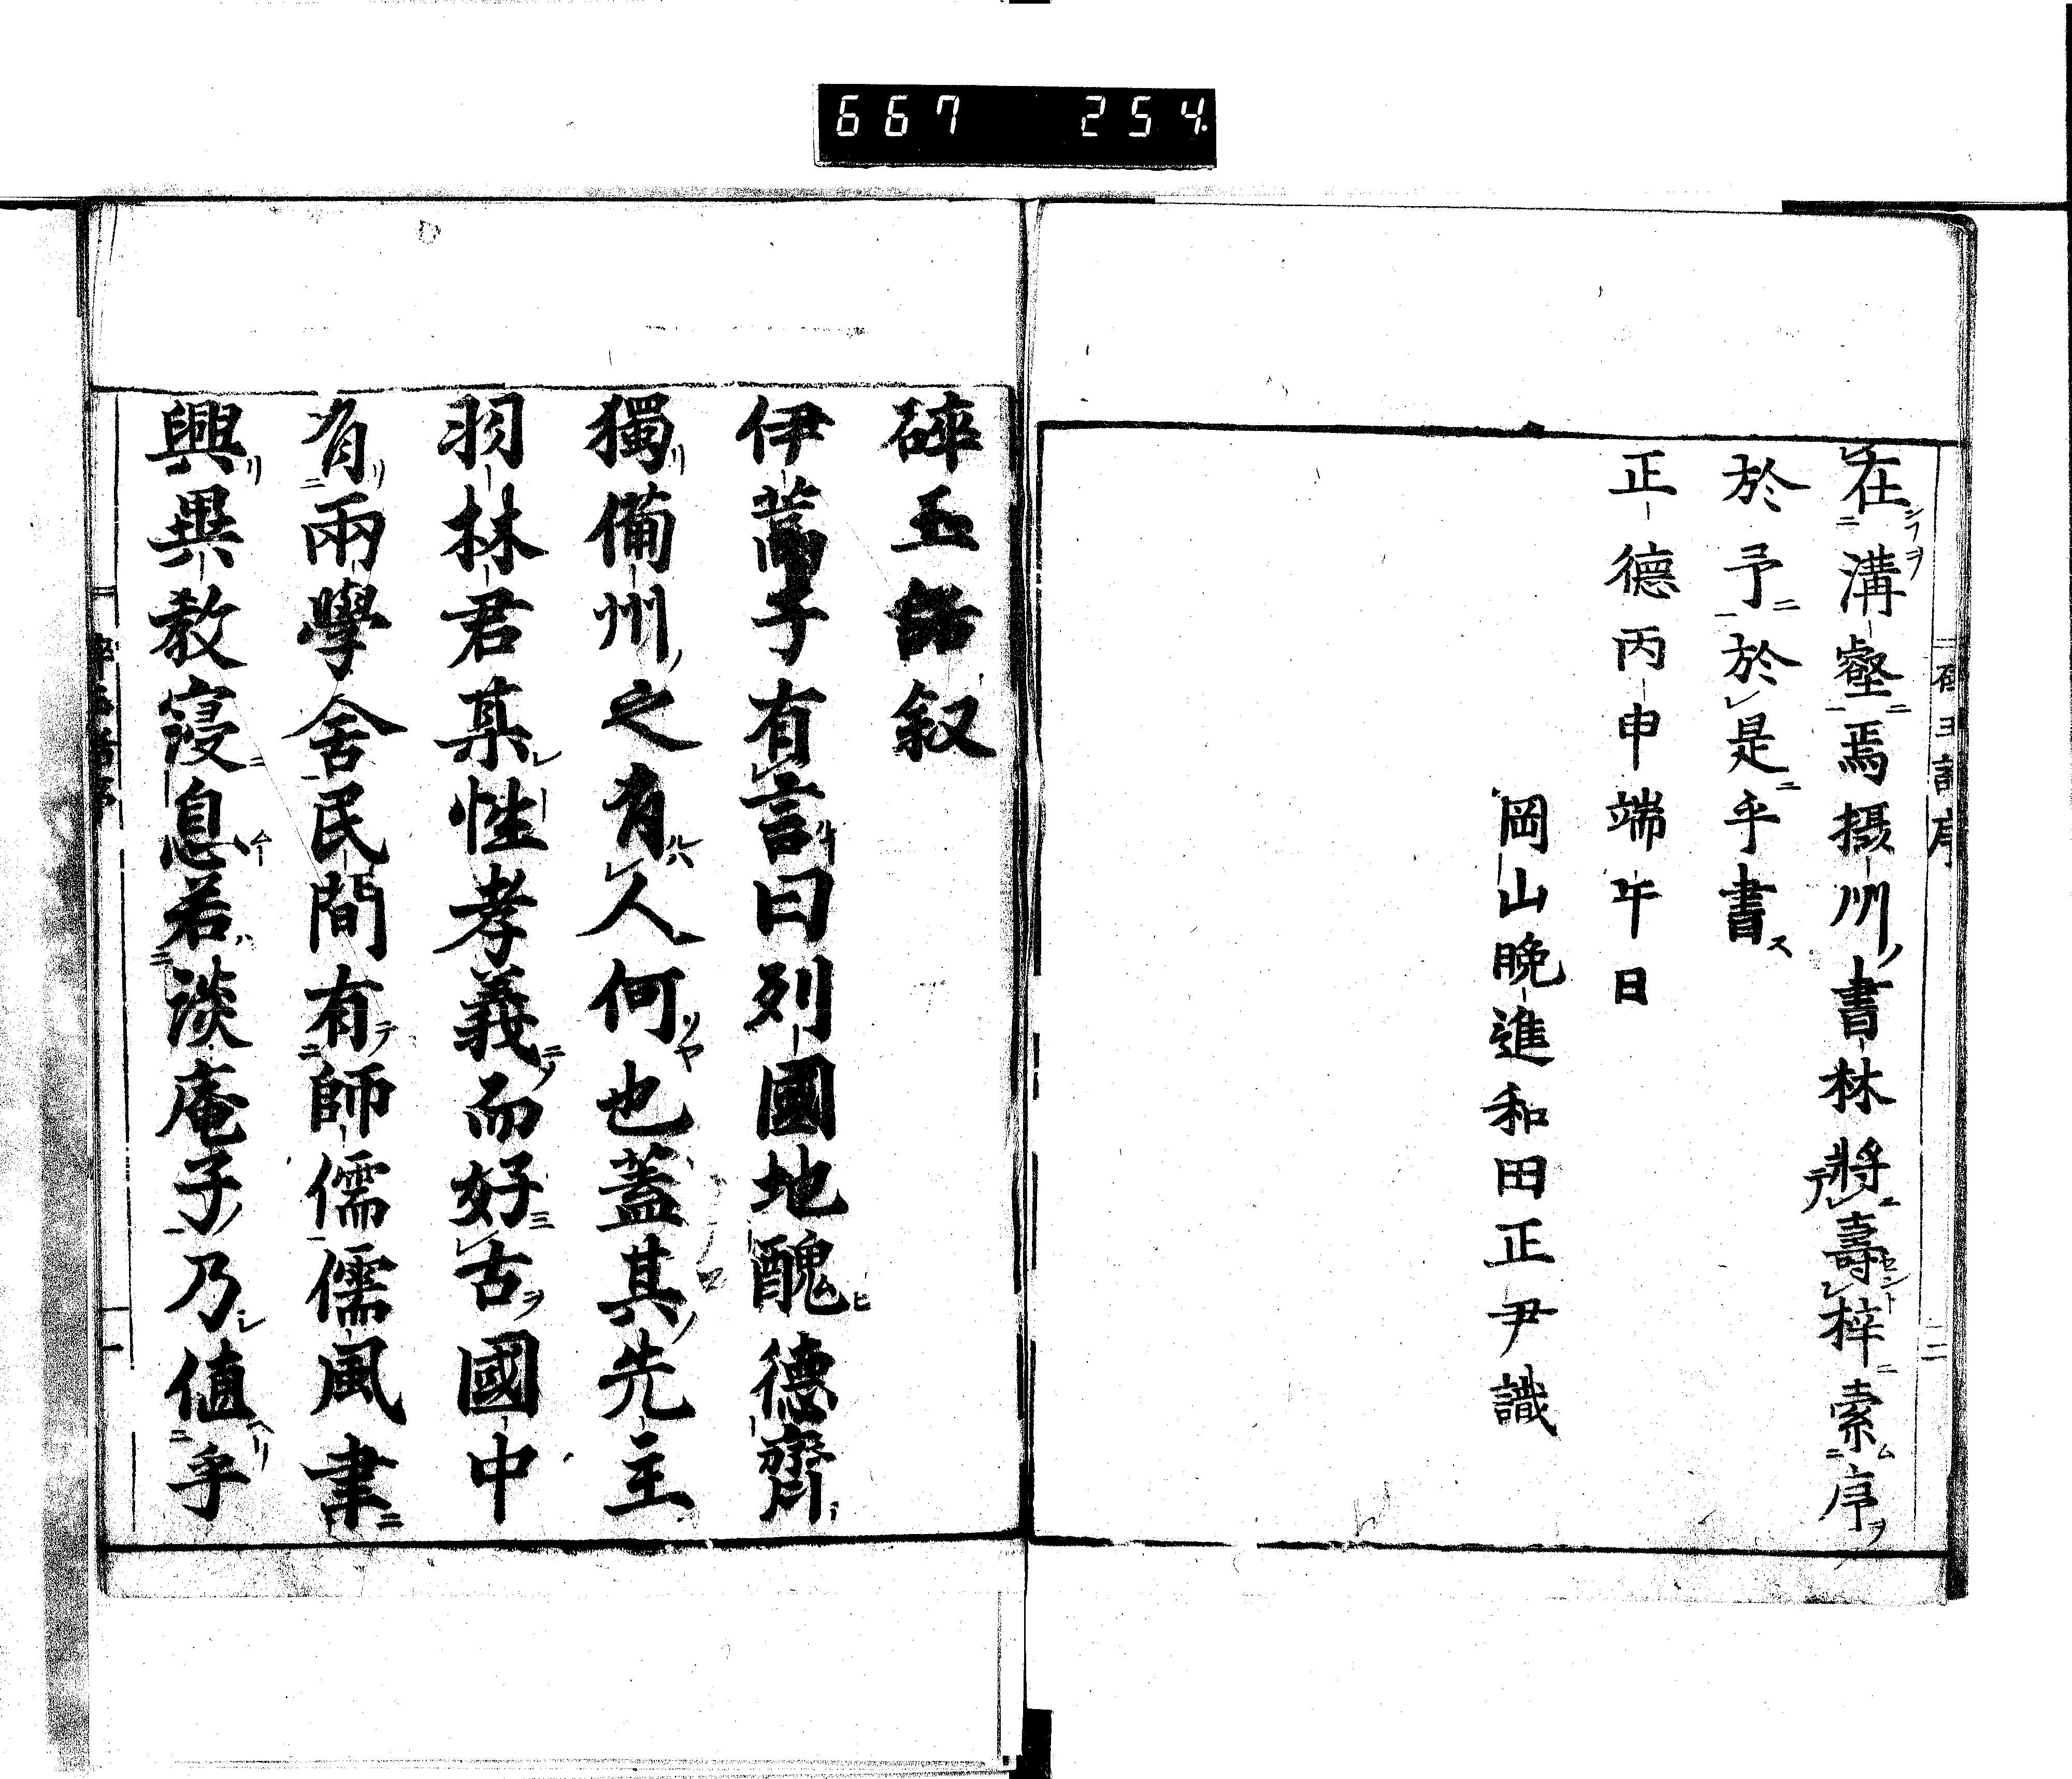 667 254.
碎玉話序 二
在溝壑焉摂州書林將壽梓索序
於予於是乎書
正德丙申端午日
岡山晩進和田正尹識
碎玉話叙
伊蒿子有言曰列國地醜德齊
獨備州之有人何也蓋其先主
羽林君某性孝義而好古國中
有兩學舍民間有師儒儒風聿
興異教寖息若淡庵子乃値乎